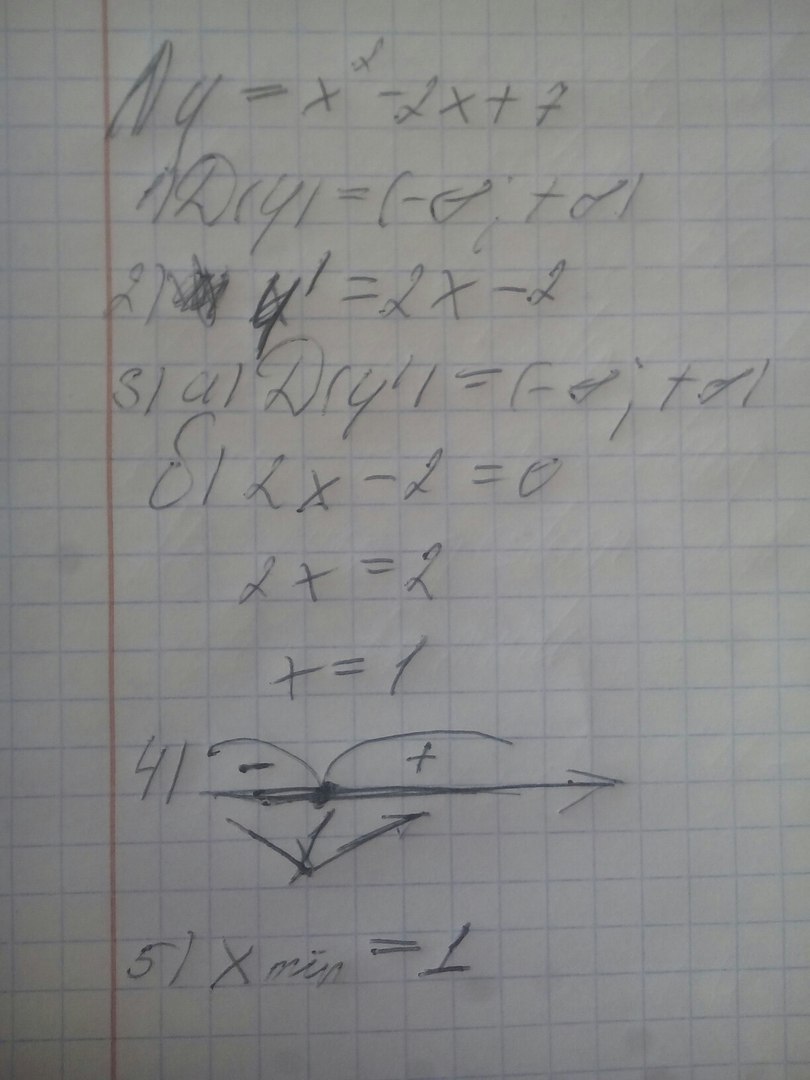 1) y = x² - 2x + 7
1) D(y) = (-∞; +∞)
2) y' = 2x - 2
3) а) D(y') = (-∞; +∞)
б) 2x - 2 = 0
2x = 2
x = 1
4) - +
1
5) x min = 1